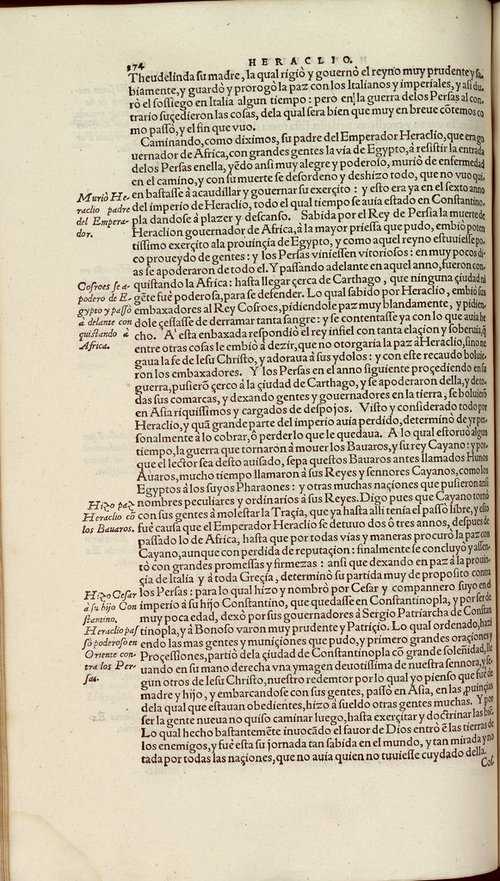 174
HERACLIO.
Theudelinda su madre, la qual rigiò y gouernò el reyno muy prudente y sa-
biamente, y guardò y prorogò la paz con los Italianos y imperiales, y asi du-
rò el sossiego en Italia algun tiempo: pero en la guerra delos Persas al con-
trario suçedieron las cosas, dela qual sera bien que muy en breue cõtemos co
mo passò, y el fin que vuo.
Caminando, como diximos, su padre del Emperador Heraclio, que era go
uernador de Africa, con grandes gentes la vía de Egypto, à resistir la entrada
delos Persas enella, yẽdo ansi muy alegre y poderoso, muriò de enfermedad
en el camino, y con su muerte se desordeno y deshizo todo, que no vuo qui-
en bastasse à acaudillar y gouernar su exerçito: y esto era ya en el sexto anno
del imperio de Heraclio, todo el qual tiempo se auía estado en Constantino-
pla dandose à plazer y descanso. Sabida por el Rey de Persia la muerte de
Heraclion gouernador de Africa, à la mayor priessa que pudo, embiò poten
tissimo exerçito ala prouinçia de Egypto, y como aquel reyno estuuiesse po-
co proueydo de gentes: y los Persas viniessen vitoriosos: en muy pocos di-
as se apoderaron de todo el. Y passando adelante en aquel anno, fueron con-
quistando la Africa: hasta llegar çerca de Carthago, que ninguna çiudad ni
gẽte fuè poderosa, para se defender. Lo qual sabido por Heraclio, embiò sus
embaxadores al Rey Cosroes, pidiendole paz muy blandamente, y pidien-
dole çessasse de derramar tanta sangre: y se contentasse ya con lo que auía he
cho. A esta enbaxada respondiò el rey infiel con tanta elaçion y soberuia, q̃
entre otras cosas le embiò à dezir, que no otorgaria la paz à Heraclio, sino ne
gaua la fe de Iesu Christo, y adoraua à sus ydolos: y con este recaudo boluie-
ron los embaxadores. Y los Persas en el anno siguiente proçediendo en su
guerra, pusierõ çerco à la çiudad de Carthago, y se apoderaron della, y de to-
das sus comarcas, y dexando gentes y gouernadores en la tierra, se boluierõ
en Asia riquissimos y cargados de despojos. Visto y considerado todo por
Heraclio, y quã grande parte del imperio auía perdido, determinò de yr per-
sonalmente à lo cobrar, ô perder lo que le quedaua. A lo qual estoruò algun
tiempo, la guerra que tornaron à mouer los Bauaros, y su rey Cayano: y por-
que el lector sea desto auisado, sepa questos Bauaros antes llamados Hunos
Auaros, mucho tiempo llamaron à sus Reyes y sennores Cayanos, como los
Egyptos à los suyos Pharaones: y otras muchas naçiones que pusieron ansi
nombres peculiares y ordinarios à sus Reyes. Digo pues que Cayano tornò
con sus gentes à molestar la Traçia, que ya hasta alli tenía el passo libre, y esto
fuè causa que el Emperador Heraclio se detuuo dos ô tres annos, despues de
passado lo de Africa, hasta que por todas vías y maneras procurò la paz con
Cayano, aunque con perdida de reputaçion: finalmente se concluyò y assen-
tò con grandes promessas y firmezas: ansi que dexando en paz à la prouin-
çia de Italia y à toda Greçia, determinò su partida muy de proposito contra
los Persas: para lo qual hizo y nombrò por Cesar y compannero suyo en el
imperio à su hijo Constantino, que quedasse en Constantinopla, y por ser de
muy poca edad, dexò por sus gouernadores à Sergio Patriarcha de Constan
tinopla, y à Bonoso varon muy prudente y Patriçio. Lo qual ordenado, hazi
endo las mas gentes y muniçiones que pudo, y primero grandes oraçiones y
Proçessiones, partiò dela çiudad de Constantinopla cõ grande solenidad, lle
uando en su mano derecha vna ymagen deuotissima de nuestra sennora, y se-
gun otros de Iesu Christo, nuestro redemtor por lo qual yo pienso que fuè de
madre y hijo, y embarcandose con sus gentes, passò en Asia, en las puinçias
dela qual que estauan obedientes, hizo à sueldo otras gentes muchas. Y por
ser la gente nueua no quiso caminar luego, hasta exerçitar y doctrinar las bien.
Lo qual hecho bastantemẽte inuocãdo el fauor de Dios entrò ẽ las tierras de
los enemigos, y fuè esta su jornada tan sabida en el mundo, y tan mirada y no
tada por todas las naçiones, que no auía quien no tuuiesse cuydado della.
Cos
Muriò He-
raclio padre
del Empera-
dor.
Cosroes se a-
podero de E-
gypto y passò
a delante con
quistando à
Africa.
Hizo paz
Heraclio cõ
los Bauaros.
Hizo Cesar
à su hijo Con
stantino.
Heraclio pas
sò poderoso en
Oriente con-
tra los Per-
sas.